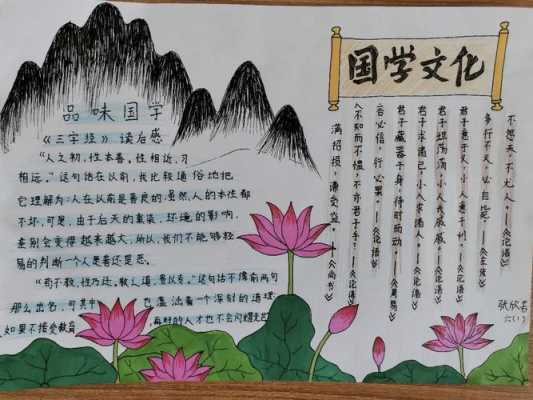 国学文化
品味国学
《三字经》读后感
"人之初，性本善，性相近，习
相远。"这句话在以前，我比较通俗地把
它理解为：人在以前是善良的：虽然，人的本性都
不坏，可是，由于后天的熏染、环境的影响，
差别会变得越来越大，所以，我们不能够轻
易的判断一个人是善还是恶。
"苟不教，性乃迁，教之道，贵以专。"这句话不像前两句
那么出名，可其中 也蕴涵着一个深刻的道理
如果不接受教育 再好的人才也不会闪耀光芒
不怨天，不尤人。——《论语》
多行不义，必自毙。——《左传》
君子喻于义，小人喻于利。——《论语》
君子坦荡荡，小人长戚戚。——《论语》
君子求诸己，小人求诸人。——《论语》
君子藏器于身，待时而动。——《周易》
言必信，行必果。——《论语》
人不知而不愠，不亦君子乎？——《论语》
满招损，谦受益。——《尚书》
六(1)